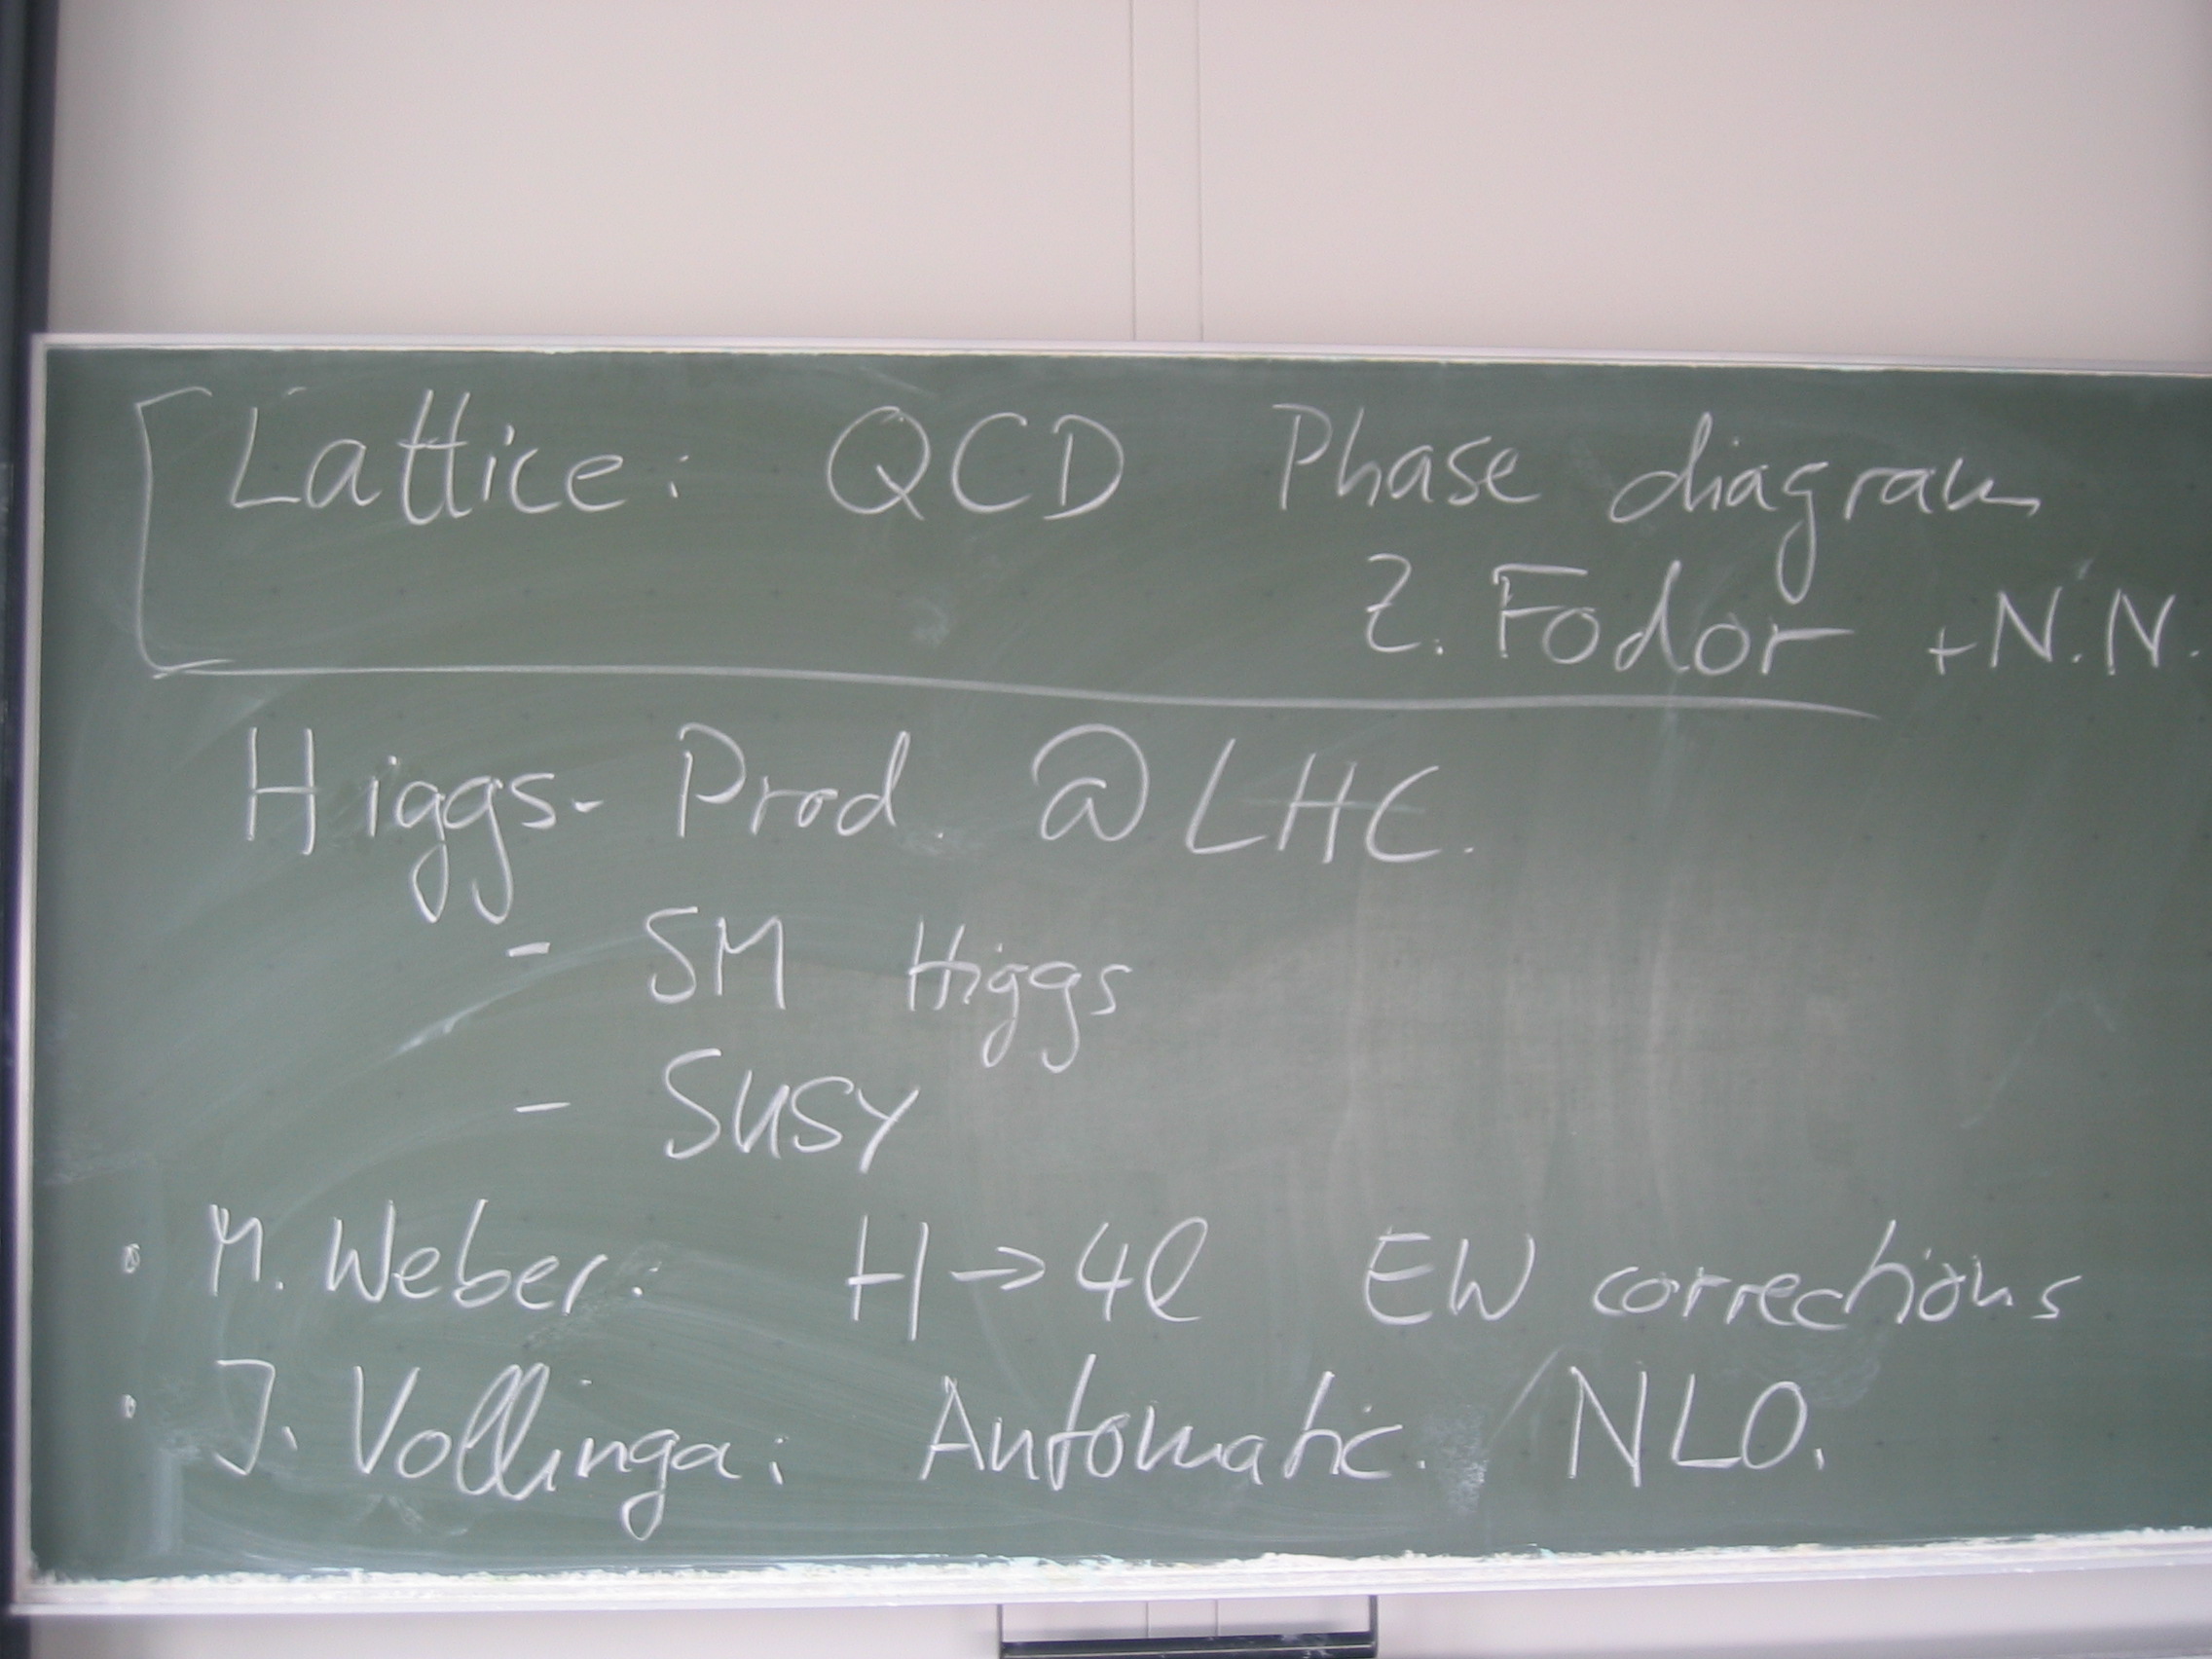 Lattice: QCD Phase diagram
Z. Fodor + N.N.
Higgs- Prod. @ LHC.
- SM Higgs
- SUSY
• M. Weber: H → 4l EW corrections
• J. Vollinga: Automatic. NLO.